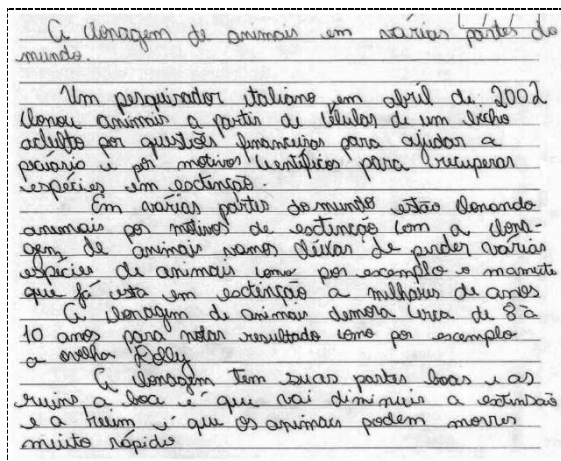 A clonagem de animais em várias partes do
mundo.
Um pesquisador italiano em abril de 2002
clonou animais a partir de células de um bicho
adulto por questões financeiras para ajudar a
pecuária e por motivos científicos para recuperar
espécies em extinção.
Em várias partes do mundo estão clonando
animais por motivos de extinção com a clona-
gem de animais vamos deixar de perder várias
espécies de animais como por escemplo o mamute
que já esta em esctinção a milhares de anos
A clonagem de animais demora cerca de 8 à
10 anos para notar resultado como por escemplo
a ovelha Dolly
A clonagem tem suas partes boas e as
ruins a boa é que vai diminuir a extinsão
e a ruim é que os animais podem morrer
muito rápido